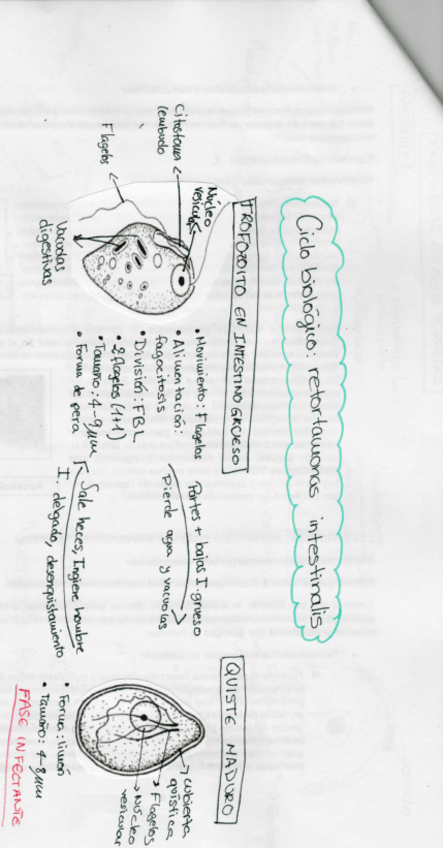 Ciclo biológico: retortamonas intestinalis
TROFOZOITO EN INTESTINO GRUESO
Citostoma
(embudo
Núcleo
vesicular
Flagelos
Vacuolas
digestivas
• Movimiento: Flagelos
• Alimentación:
fagocitosis
• División: FBL
• 2 flagelos (1+1)
• Tamaño: 4-9µm
• Forma de pera
Partes + bajas I grueso
Pierde agua y vacuolas
Sale heces, Ingiere hombre
I. delgado, desenquistamiento
QUISTE MADURO
cubierta
quística
Flagelos
Núcleo
vesicular
• Forma: limón
• Tamaño: 4-8µm
FASE INFECTANTE